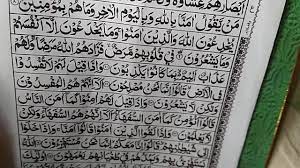 اَبْصَارِهِمْ غِشَاوَةٌ وَّلَهُمْ
مَنْ يَّقُوْلُ اٰمَنَّا بِاللّٰهِ وَبِالْيَوْمِ الْاٰخِرِ وَمَا هُمْ بِمُؤْمِنِيْنَ
يُخٰدِعُوْنَ اللّٰهَ وَالَّذِيْنَ اٰمَنُوْا وَمَا يَخْدَعُوْنَ اِلَّاۤ اَنْفُسَهُمْ
وَمَا يَشْعُرُوْنَ فِيْ قُلُوْبِهِمْ مَّرَضٌ فَزَادَهُمُ اللّٰهُ مَرَضًا وَلَهُمْ
عَذَابٌ اَلِيْمٌ بِمَا كَانُوْا يَكْذِبُوْنَ وَاِذَا قِيْلَ لَهُمْ لَا تُفْسِدُوْا
فِي الْاَرْضِ قَالُوْۤا اِنَّمَا نَحْنُ مُصْلِحُوْنَ اَلَاۤ اِنَّهُمْ هُمُ الْمُفْسِدُوْنَ
وَلٰكِنْ لَّا يَشْعُرُوْنَ وَاِذَا قِيْلَ لَهُمْ اٰمِنُوْا كَمَاۤ اٰمَنَ النَّاسُ
قَالُوْۤا اَنُؤْمِنُ كَمَاۤ اٰمَنَ السُّفَهَآءُ اَلَاۤ اِنَّهُمْ هُمُ السُّفَهَآءُ وَلٰكِنْ
لَّا يَعْلَمُوْنَ وَاِذَا لَقُوا الَّذِيْنَ اٰمَنُوْا قَالُوْۤا اٰمَنَّا وَاِذَا خَلَوْا
اِلٰى شَيٰطِيْنِهِمْ قَالُوْۤا اِنَّا مَعَكُمْ اِنَّمَا نَحْنُ